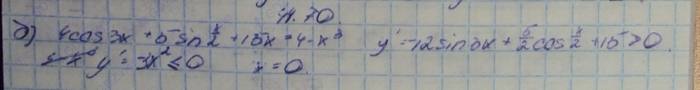 4.70.
б) 4cos3x + 5 sin x/2 + 15x = 4 - x³   y' = -12sin3x + 5/2 cos x/2 + 15 > 0.
y' = -3x² ≤ 0   x = 0.